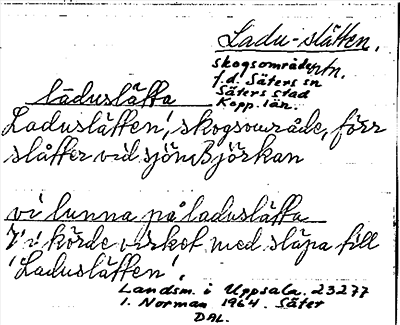 Ladu-slåtten.
skogsområde, rtn.
f.d. Säters sn
Säters stad
Kopp. län.
laduslåtta
Laduslåtten', skogsområde, förr
slåtter vid sjön Björkan
vi lunna på laduslåtta
'Vi körde virket med släpa till
'Laduslåtten'.
Landsm. i Uppsala. 23277
I. Norman 1964. Säter
DAL.